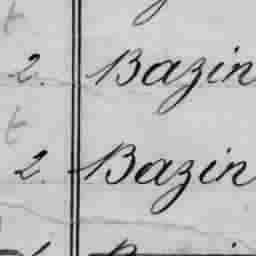 t
2. Bazin
t
2. Bazin